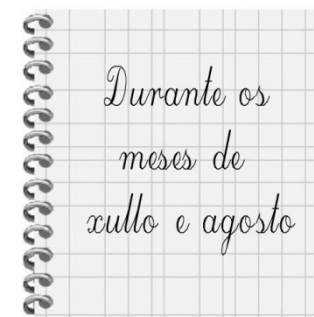 Durante os
meses de
xullo e agosto